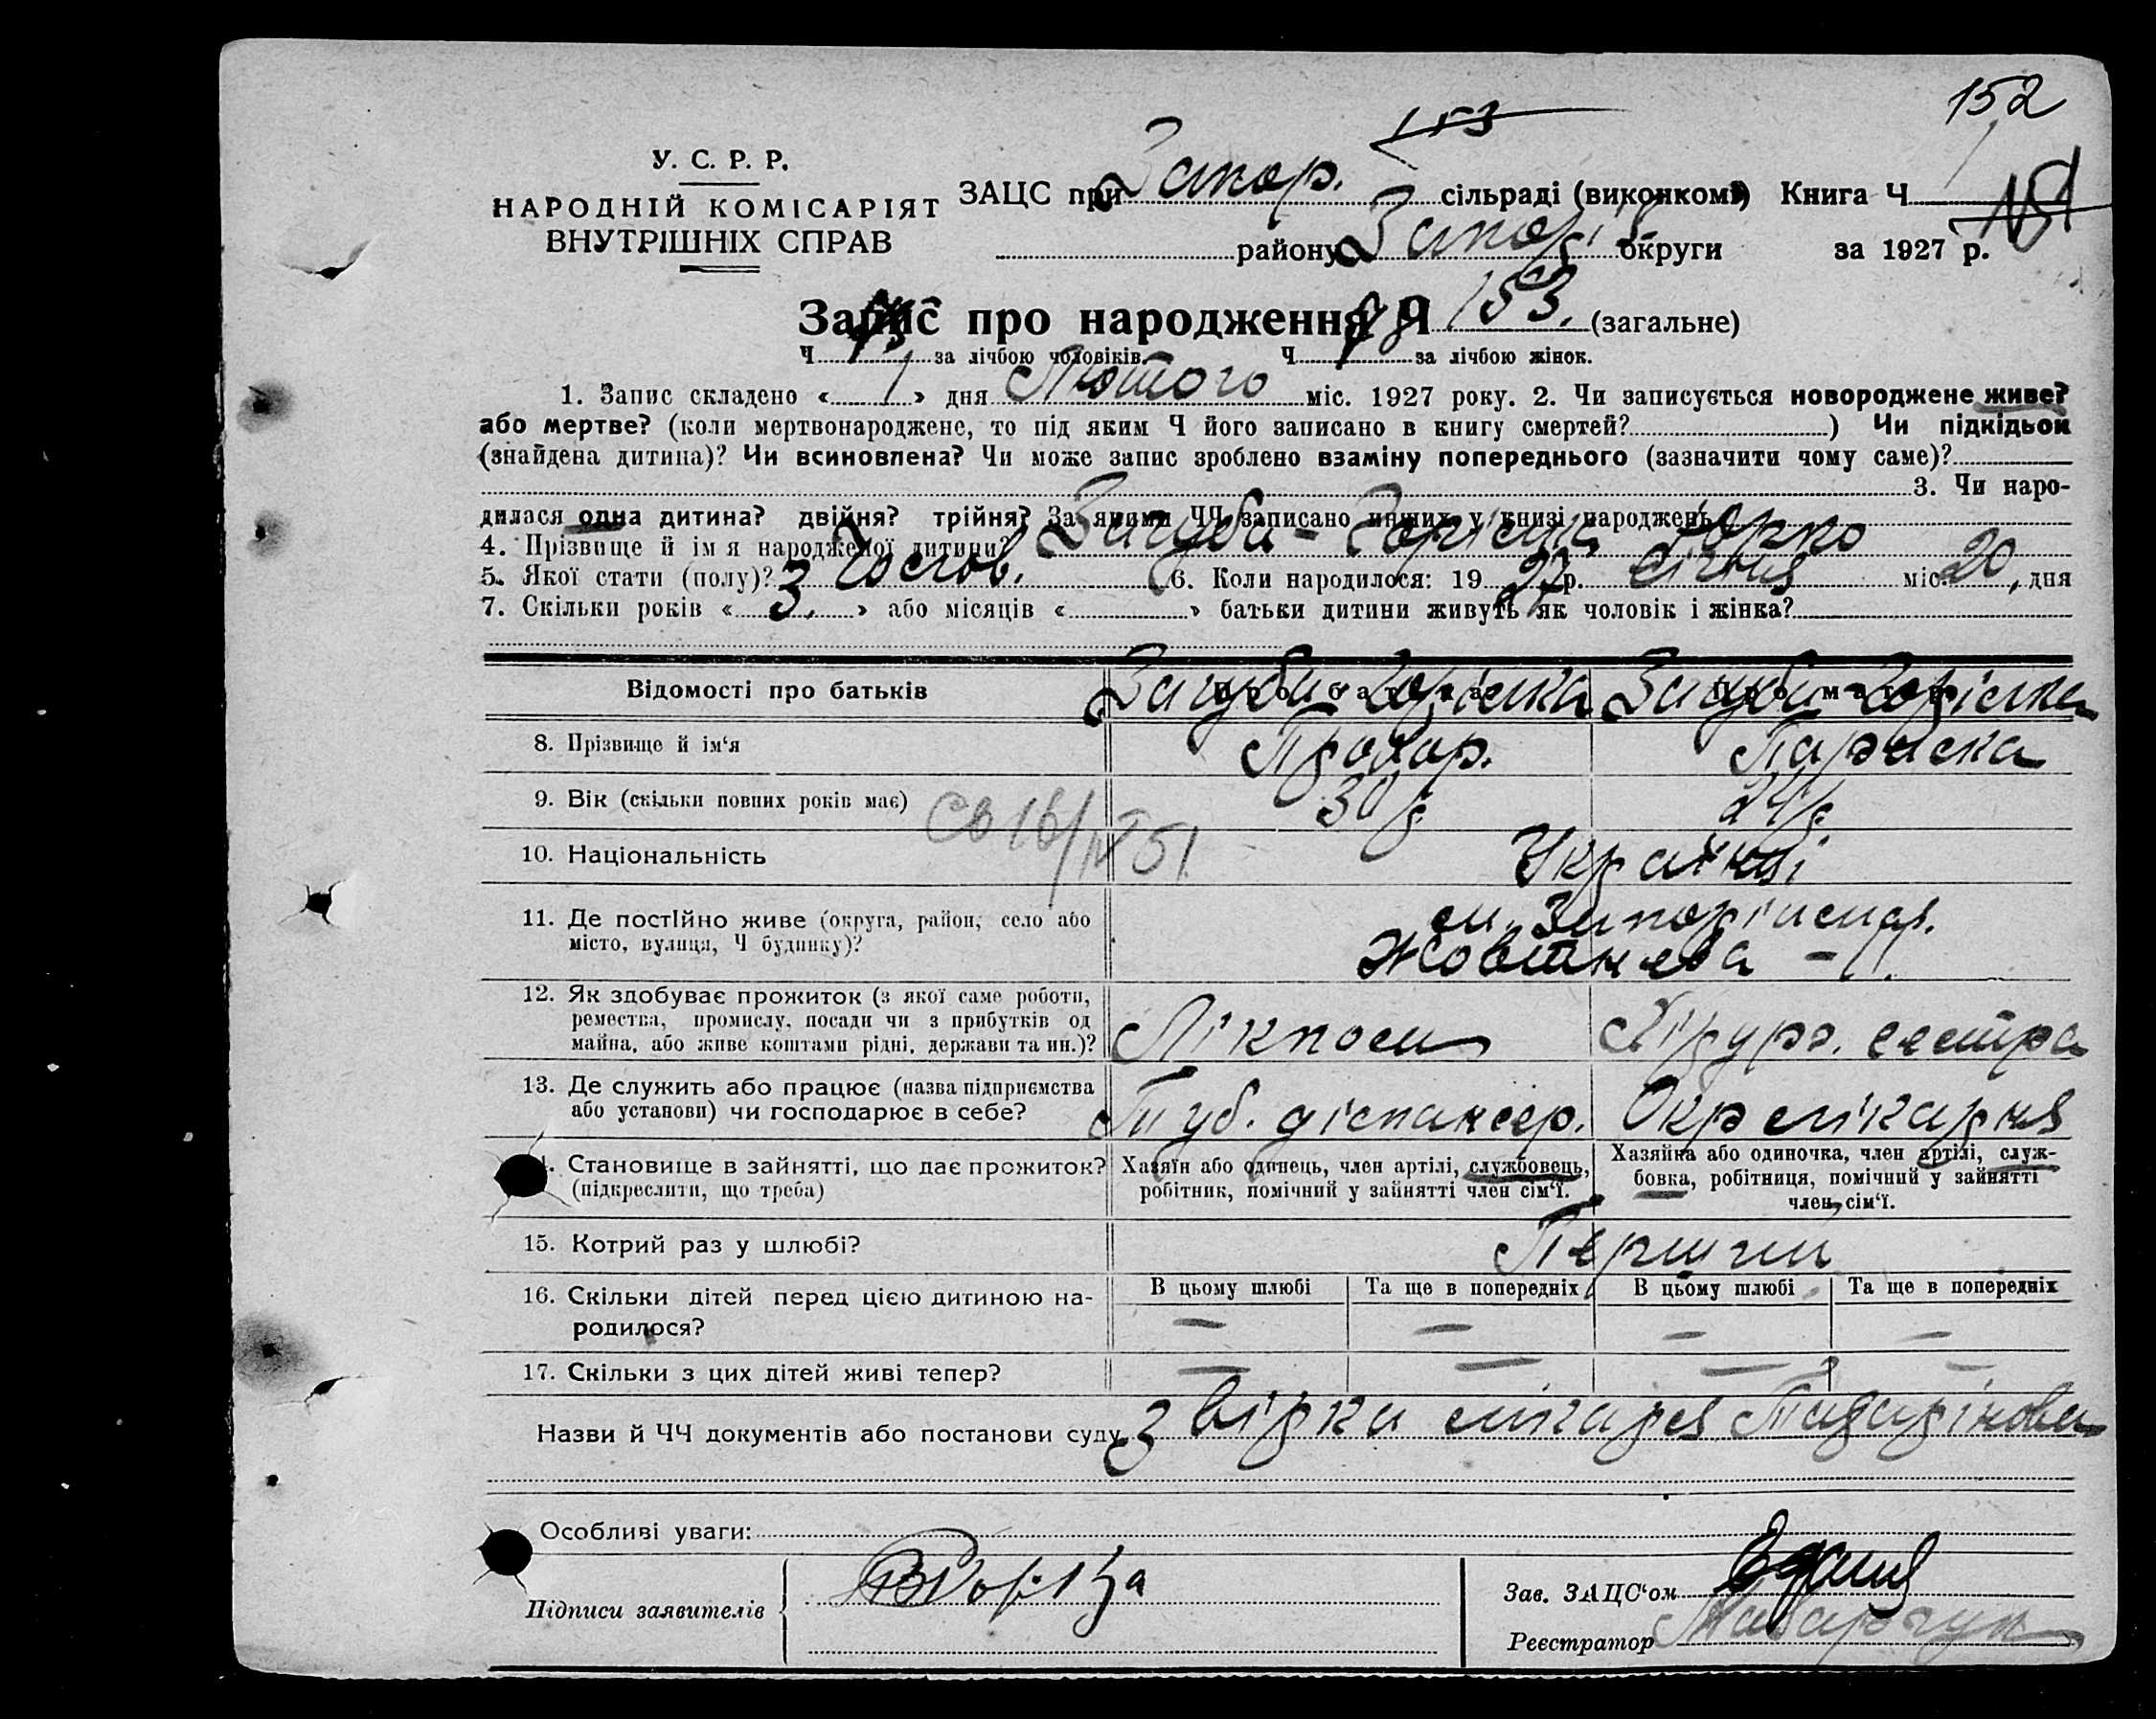 152
153
У. С. Р. Р.
НАРОДНІЙ КОМІСАРІЯТ
ВНУТРІШНІХ СПРАВ
ЗАЦС при Запор. сільраді (виконкомі) Книга Ч
району Запоріз округи за 1927 р.
Запис про народження Ч 153. (загальне)
Ч за лічбою чоловіків Ч за лічбою жінок.
1. Запис складено « 1 » дня Лютого міс. 1927 року. 2. Чи записується новороджене живе?
або мертве? (коли мертвонароджене, то під яким Ч його записано в книгу смертей? ) Чи підкідьок
(знайдена дитина)? Чи всиновлена? Чи може запис зроблено взаміну попереднього (зазначити чому саме)?
3. Чи наро-
дилася одна дитина? двійня? трійня? За якими ЧЧ записано инших у книзі народжень?
4. Прізвище й ім'я народженої дитини? Загуба- Юрко
5. Якої стати (полу)? Чолов. 6. Коли народилося: 1927 р. Січня міс 20, дня
7. Скільки років « 3. » або місяців « » батьки дитини живуть як чоловік і жінка?
Відомості про батьків Про батька Про матір
8. Прізвище й ім'я Прохор. Параска
9. Вік (скільки повних років має) 30 р 24 р.
10. Національність Українці
11. Де постійно живе (округа, район, село або м. Запоріжжя.
місто, вулиця, Ч будинку)? Жовтнева - 11.
12. Як здобуває прожиток (з якої саме роботи,
ремества, промислу, посади чи з прибутків од
майна, або живе коштами рідні, держави та ин.)? Лікпом Хірург. сестра
13. Де служить або працює (назва підприємства
або установи) чи господарює в себе? Туб. діспансер. Окрлікарня
Становище в зайнятті, що дає прожиток? Хазяїн або одинець, член артілі, службовець, Хазяйка або одиночка, член артілі, служ-
(підкреслити, що треба) робітник, помічний у зайнятті член сім'ї. бовка, робітниця, помічний у зайнятті
член сім'ї.
15. Котрий раз у шлюбі? Перший
16. Скільки дітей перед цією дитиною на- В цьому шлюбі Та ще в попередніх В цьому шлюбі Та ще в попередніх
родилося? — — — —
17. Скільки з цих дітей живі тепер? — — — —
Назви й ЧЧ документів або постанови суду Звірка лікаря
Особливі уваги:
Підписи заявителів Зав. ЗАЦС'ом
Реєстратор